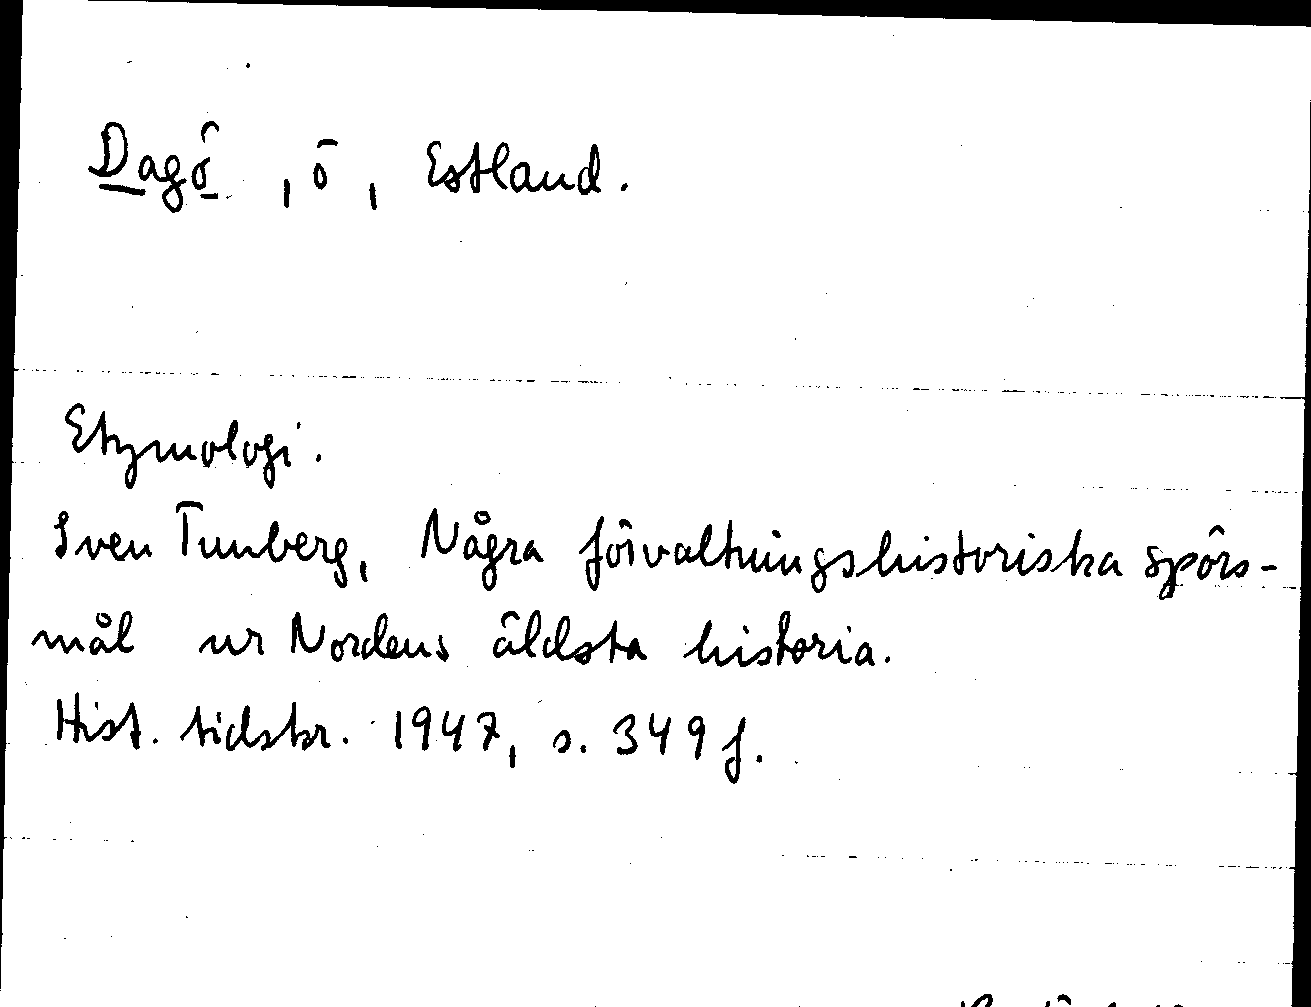 Dagö, ö, Estland.
Etymologi.
Sven Tunberg, Några förvaltningshistoriska spörs-
mål ur Nordens äldsta historia.
Hist. tidskr. 1947, s. 349 f.